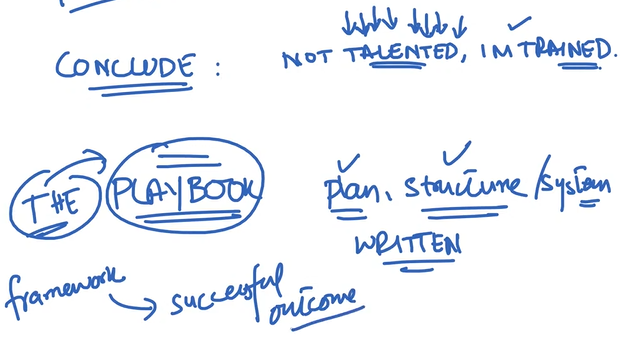 CONCLUDE : NOT TALENTED, IM TRAINED.
THE PLAYBOOK plan, structure/system
WRITTEN
framework → successful outcome